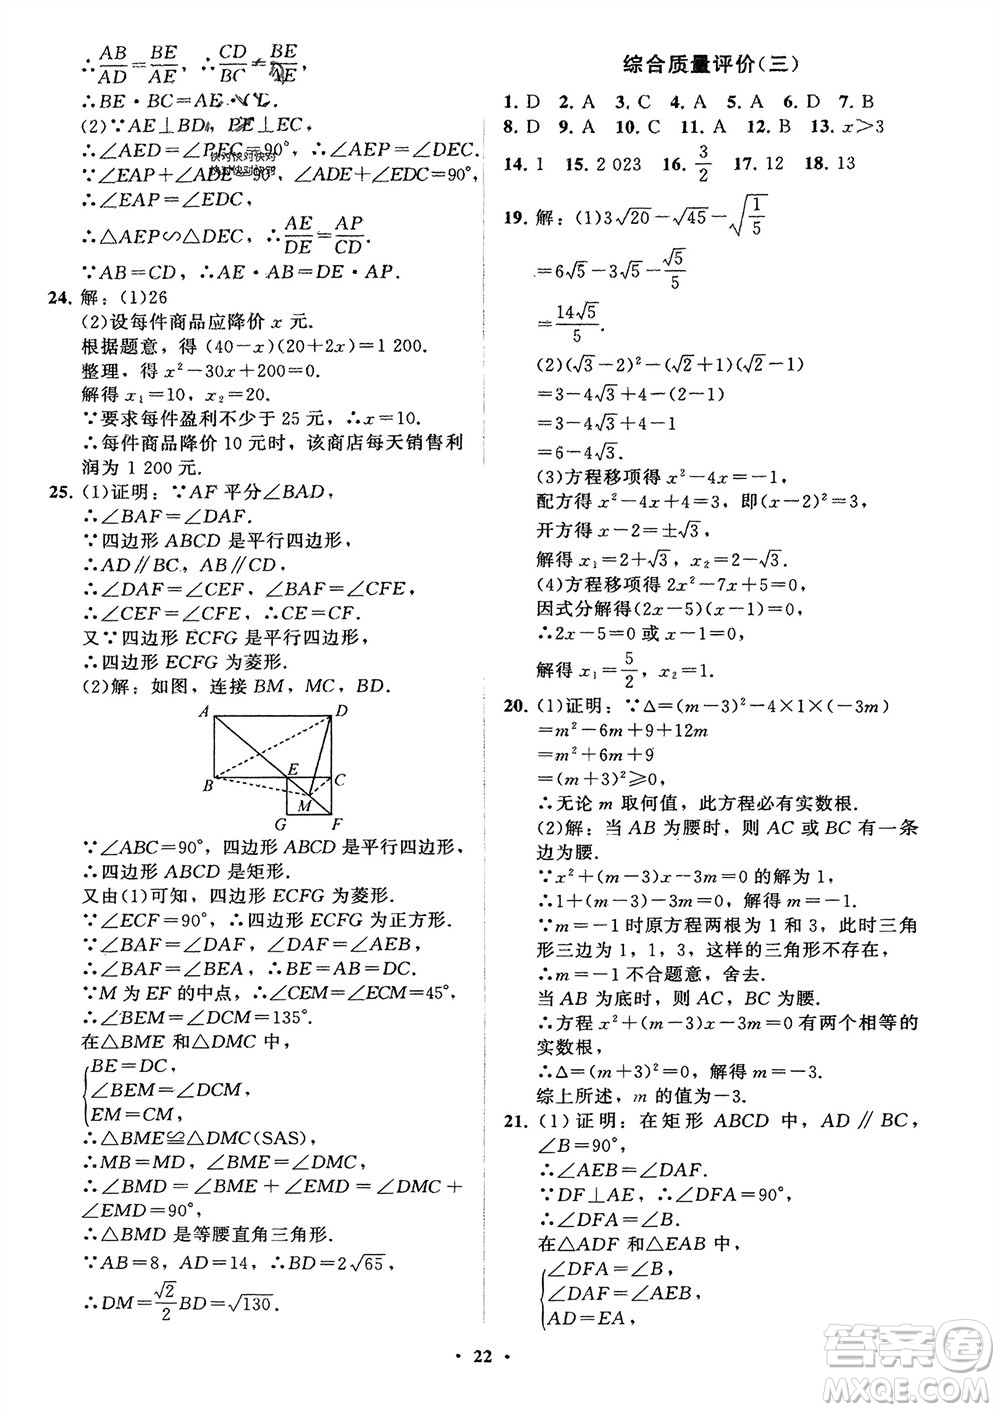 ∴AB/AD=BE/AE, ∴CD/BC=BE/AE.
∴BE·BC=AE·
(2)∵AE⊥BD, ⊥EC,
∴∠AED=∠PEC=90°, ∴∠AEP=∠DEC.
∵∠EAP+∠ADE=90°, ∠ADE+∠CDE=90°,
快对快对快对
快对快对快对
∴∠EAP=∠EDC.
∴△AEP∽△DEC, ∴AE/DE=AP/CD.
∵AB=CD, ∴AE·AB=DE·AP.
24. 解:(1)26
(2)设每件商品应降价 x 元.
根据题意, 得 (40-x)(20+2x)=1 200.
整理, 得 x²-30x+200=0.
解得 x₁=10, x₂=20.
∵要求每件盈利不少于 25 元, ∴x=10.
∴每件商品降价 10 元时, 该商店每天销售利
润为 1 200 元.
25. (1)证明: ∵AF 平分∠BAD,
∴∠BAF=∠DAF.
∵四边形 ABCD 是平行四边形,
∴AD∥BC, AB∥CD.
∴∠DAF=∠CEF, ∠BAF=∠CFE.
∴∠CEF=∠CFE, ∴CE=CF.
又∵四边形 ECFG 是平行四边形,
∴四边形 ECFG 为菱形.
(2)解: 如图, 连接 BM, MC, BD.
A D
B E C
M
G F
∵∠ABC=90°, 四边形 ABCD 是平行四边形,
∴四边形 ABCD 是矩形.
又由(1)可知, 四边形 ECFG 为菱形.
∵∠ECF=90°, ∴四边形 ECFG 为正方形.
∵∠BAF=∠DAF, ∠DAF=∠AEB,
∴∠BAF=∠BEA, ∴BE=AB=DC.
∵M 为 EF 的中点, ∴∠CEM=∠ECM=45°,
∴∠BEM=∠DCM=135°.
在△BME 和△DMC 中,
{BE=DC,
∠BEM=∠DCM,
EM=CM,
∴△BME≌△DMC(SAS),
∴MB=MD, ∠BME=∠DMC,
∴∠BMD=∠BME+∠EMD=∠DMC+
∠EMD=90°,
∴△BMD 是等腰直角三角形.
∵AB=8, AD=14, ∴BD=2√65,
∴DM=√2/2 BD=√130.
综合质量评价(三)
1. D 2. A 3. C 4. A 5. A 6. D 7. B
8. D 9. A 10. C 11. A 12. B 13. x>3
14. 1 15. 2 023 16. 3/2 17. 12 18. 13
19. 解: (1)3√20-√45-√(1/5)
=6√5-3√5-√5/5
=14√5/5.
(2)(√3-2)²-(√2+1)(√2-1)
=3-4√3+4-(2-1)
=3-4√3+4-1
=6-4√3.
(3)方程移项得 x²-4x=-1,
配方得 x²-4x+4=3, 即(x-2)²=3,
开方得 x-2=±√3,
解得 x₁=2+√3, x₂=2-√3.
(4)方程移项得 2x²-7x+5=0,
因式分解得(2x-5)(x-1)=0,
∴2x-5=0 或 x-1=0,
解得 x₁=5/2, x₂=1.
20. (1)证明: ∵Δ=(m-3)²-4×1×(-3m)
=m²-6m+9+12m
=m²+6m+9
=(m+3)²≥0,
∴无论 m 取何值, 此方程必有实数根.
(2)解: 当 AB 为腰时, 则 AC 或 BC 有一条
边为腰.
∵x²+(m-3)x-3m=0 的解为 1,
∴1+(m-3)-3m=0, 解得 m=-1.
∵m=-1 时原方程两根为 1 和 3, 此时三角
形三边为 1, 1, 3, 这样的三角形不存在,
∴m=-1 不合题意, 舍去.
当 AB 为底时, 则 AC, BC 为腰.
∴方程 x²+(m-3)x-3m=0 有两个相等的
实数根,
∴Δ=(m+3)²=0, 解得 m=-3.
综上所述, m 的值为-3.
21. (1)证明: 在矩形 ABCD 中, AD∥BC,
∠B=90°,
∴∠AEB=∠DAF.
∵DF⊥AE, ∴∠DFA=90°,
∴∠DFA=∠B.
在△ADF 和△EAB 中,
{∠DFA=∠B,
∠DAF=∠AEB,
AD=EA,
· 22 ·
答案圈
MXQE.COM